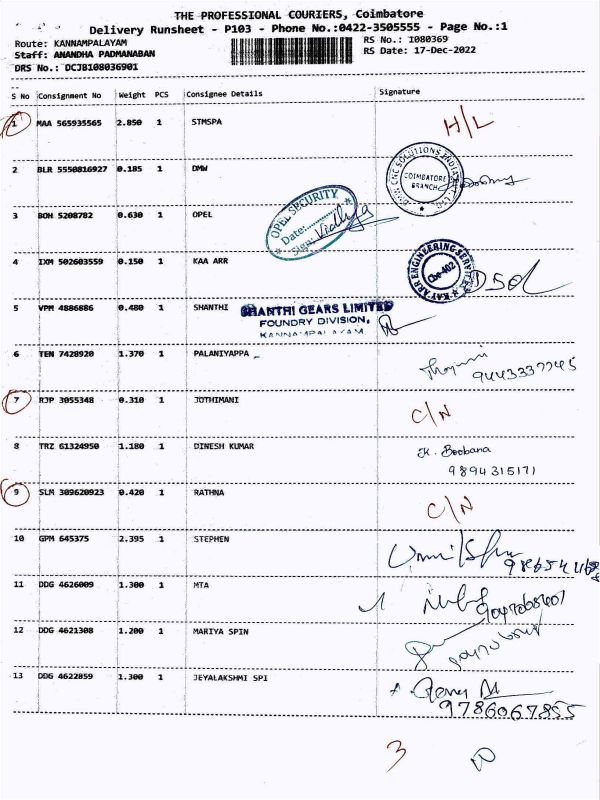 THE PROFESSIONAL COURIERS, Coimbatore
Delivery Runsheet - P103 - Phone No.:0422-3505555 - Page No.:1
Route: KANNAMPALAYAM RS No.: I080369
Staff: ANANDHA PADMANABAN RS Date: 17-Dec-2022
DRS No.: DCJB108036901
S No Consignment No Weight PCS Consignee Details Signature
1 MAA 565935565 2.850 1 STMSPA H/L
2 BLR 5550816927 0.185 1 DMW COIMBATORE BRANCH
3 BOH 5208782 0.630 1 OPEL OPEL SECURITY Date: Sign: Vidhya
4 IXM 502603559 0.150 1 KAA ARR KAY ARR ENGINEERING SERVICES Cbe-402
5 VPM 4886886 0.480 1 SHANTHI SHANTHI GEARS LIMITED
FOUNDRY DIVISION,
KANNAMPALAYAM
6 TEN 7428920 1.370 1 PALANIYAPPA
7 RJP 3055348 0.310 1 JOTHIMANI C/N
8 TRZ 61324950 1.180 1 DINESH KUMAR K. Boobana
9894315171
9 SLM 309620923 0.420 1 RATHNA C/N
10 GPM 645375 2.395 1 STEPHEN
11 DDG 4626009 1.300 1 MTA
12 DDG 4621308 1.200 1 MARIYA SPIN
13 DDG 4622859 1.300 1 JEYALAKSHMI SPI
9786067855
3